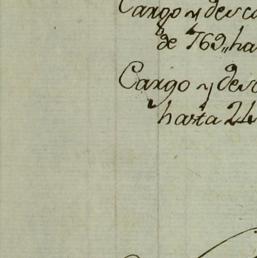 Cargo y desc
de 769,, ha
Cargo y desc
hasta 24